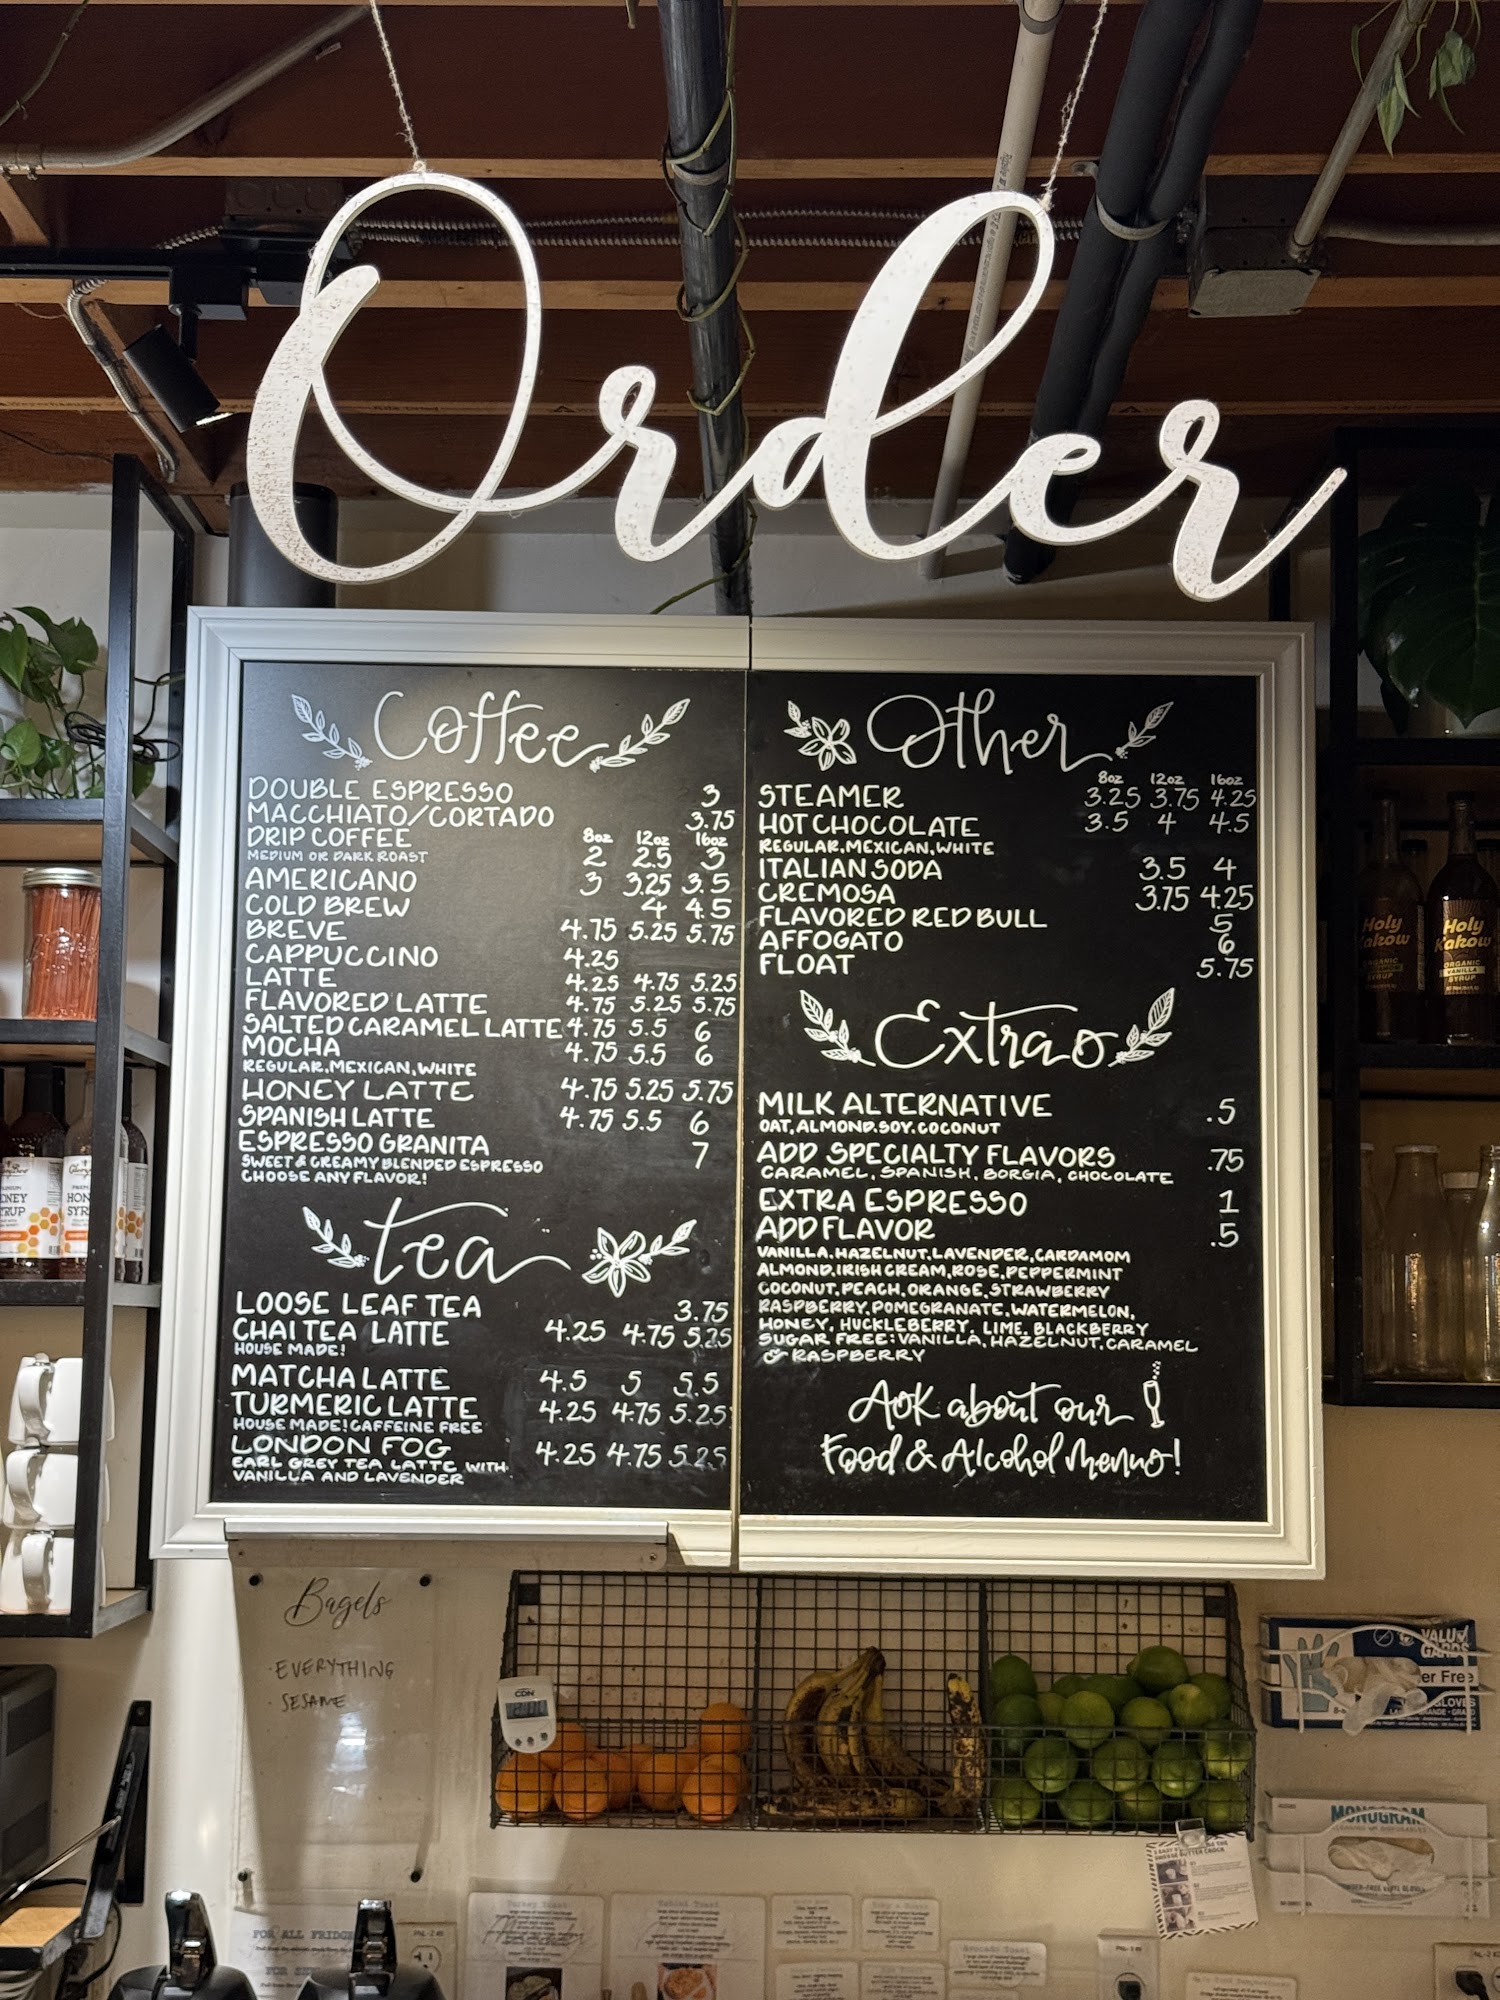 Order
Coffee
DOUBLE ESPRESSO 3
MACCHIATO/CORTADO 3.75
DRIP COFFEE 8oz 12oz 16oz
MEDIUM OR DARK ROAST 2 2.5 3
AMERICANO 3 3.25 3.5
COLD BREW 4 4.5
BREVE 4.75 5.25 5.75
CAPPUCCINO 4.25
LATTE 4.25 4.75 5.25
FLAVORED LATTE 4.75 5.25 5.75
SALTED CARAMEL LATTE 4.75 5.5 6
MOCHA 4.75 5.5 6
REGULAR, MEXICAN, WHITE
HONEY LATTE 4.75 5.25 5.75
SPANISH LATTE 4.75 5.5 6
ESPRESSO GRANITA 7
SWEET & CREAMY BLENDED ESPRESSO
CHOOSE ANY FLAVOR!
tea
LOOSE LEAF TEA 3.75
CHAI TEA LATTE 4.25 4.75 5.25
HOUSE MADE!
MATCHA LATTE 4.5 5 5.5
TURMERIC LATTE 4.25 4.75 5.25
HOUSE MADE! CAFFEINE FREE
LONDON FOG 4.25 4.75 5.25
EARL GREY TEA LATTE WITH
VANILLA AND LAVENDER
Other
8oz 12oz 16oz
STEAMER 3.25 3.75 4.25
HOT CHOCOLATE 3.5 4 4.5
REGULAR, MEXICAN, WHITE
ITALIAN SODA 3.5 4
CREMOSA 3.75 4.25
FLAVORED RED BULL 5
AFFOGATO 6
FLOAT 5.75
Extras
MILK ALTERNATIVE .5
OAT, ALMOND, SOY, COCONUT
ADD SPECIALTY FLAVORS .75
CARAMEL, SPANISH, BORGIA, CHOCOLATE
EXTRA ESPRESSO 1
ADD FLAVOR .5
VANILLA, HAZELNUT, LAVENDER, CARDAMOM
ALMOND, IRISH CREAM, ROSE, PEPPERMINT
COCONUT, PEACH, ORANGE, STRAWBERRY
RASPBERRY, POMEGRANATE, WATERMELON,
HONEY, HUCKLEBERRY, LIME, BLACKBERRY
SUGAR FREE: VANILLA, HAZELNUT, CARAMEL
& RASPBERRY
Ask about our
Food & Alcohol menus!
Holy
Kakow
Holy
Kakow
ORGANIC
VANILLA
SYRUP
Bagels
· EVERYTHING
· SESAME
CDN
VALU
GARDS
MONOGRAM
FOR ALL FRIDGE
Turkey Toast
Avocado Toast